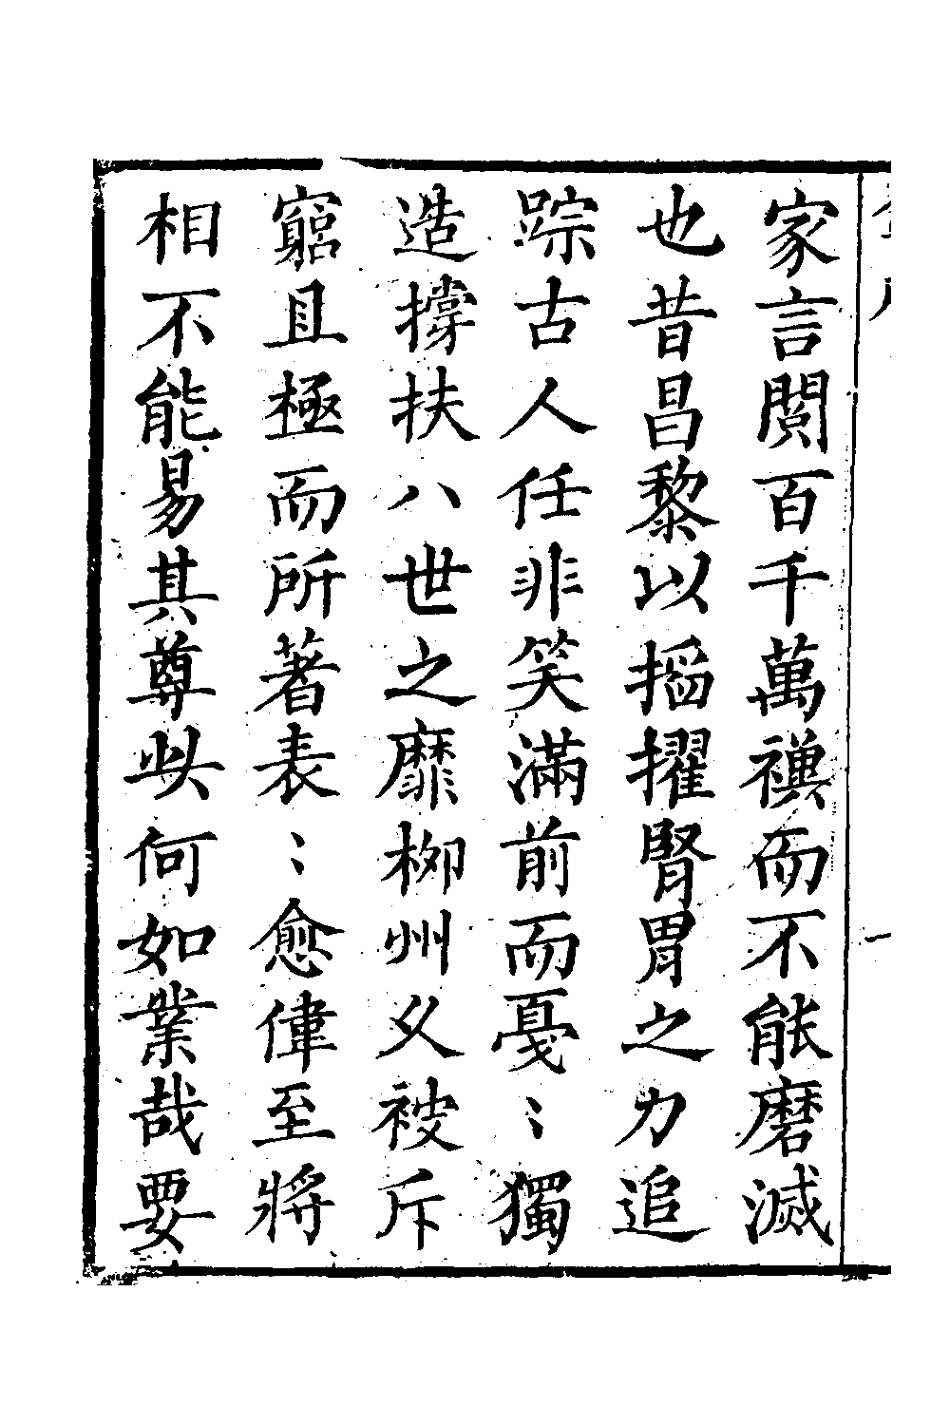 家言閱百千萬禩而不能磨滅
也昔昌黎以搯擢腎胃之力追
踪古人任非笑滿前而戞〻獨
造撐扶八世之靡柳州乂被斥
窮且極而所著表〻愈偉至將
相不能易其尊此何如業哉要